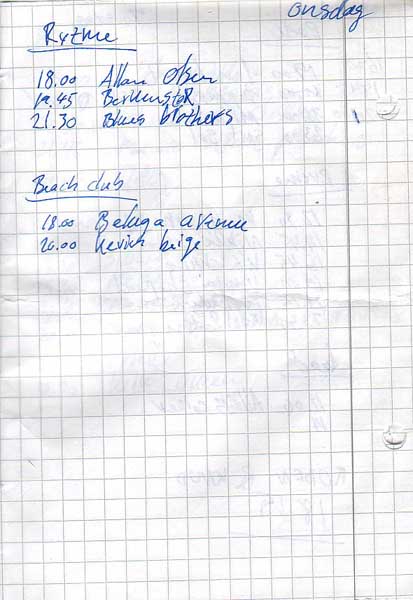 onsdag
Rytme
18.00 Allan Olsen
19.45
21.30 Blues brothers
Beach club
18.00 Beluga avenue
20.00 Kevin